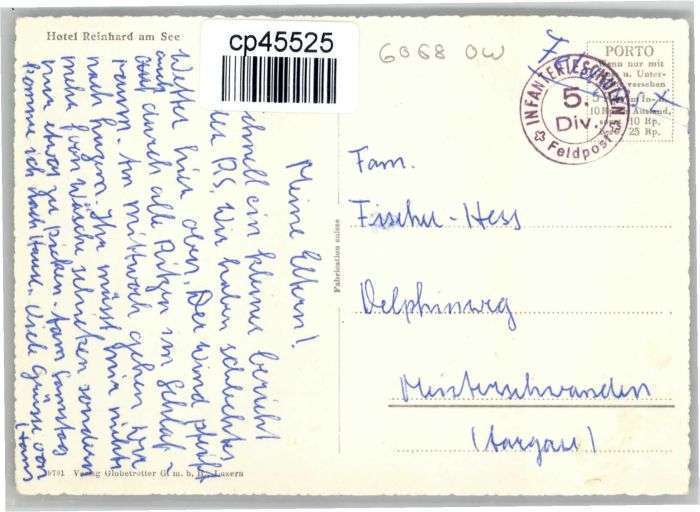 Hotel Reinhard am See
cp45525
6068 OW
PORTO
wenn nur mit
u. Unter-
versehen
10 Rp.
25 Rp.
INFANTERIESCHULEN
5.
Div.
Feldpost
Meine Eltern!
schnell ein kleiner bericht
der RS. Wir haben schlechtes
Wetter hier oben. Der Wind pfeift
auch durch alle Ritzen im Schlaf-
raum. Am Mittwoch gehen wir
nach Hagen. Ihr müsst mir nichts
mehr von Wäsche schicken sondern
nur etwas zu
Komme ich nach Hause. Viele Grüsse von
Hans
Fabrication suisse
Fam.
Fischer-Hess
Delphinweg
Meisterschwanden
(Aargau)
Verlag Globetrotter G. m. b. H., Luzern